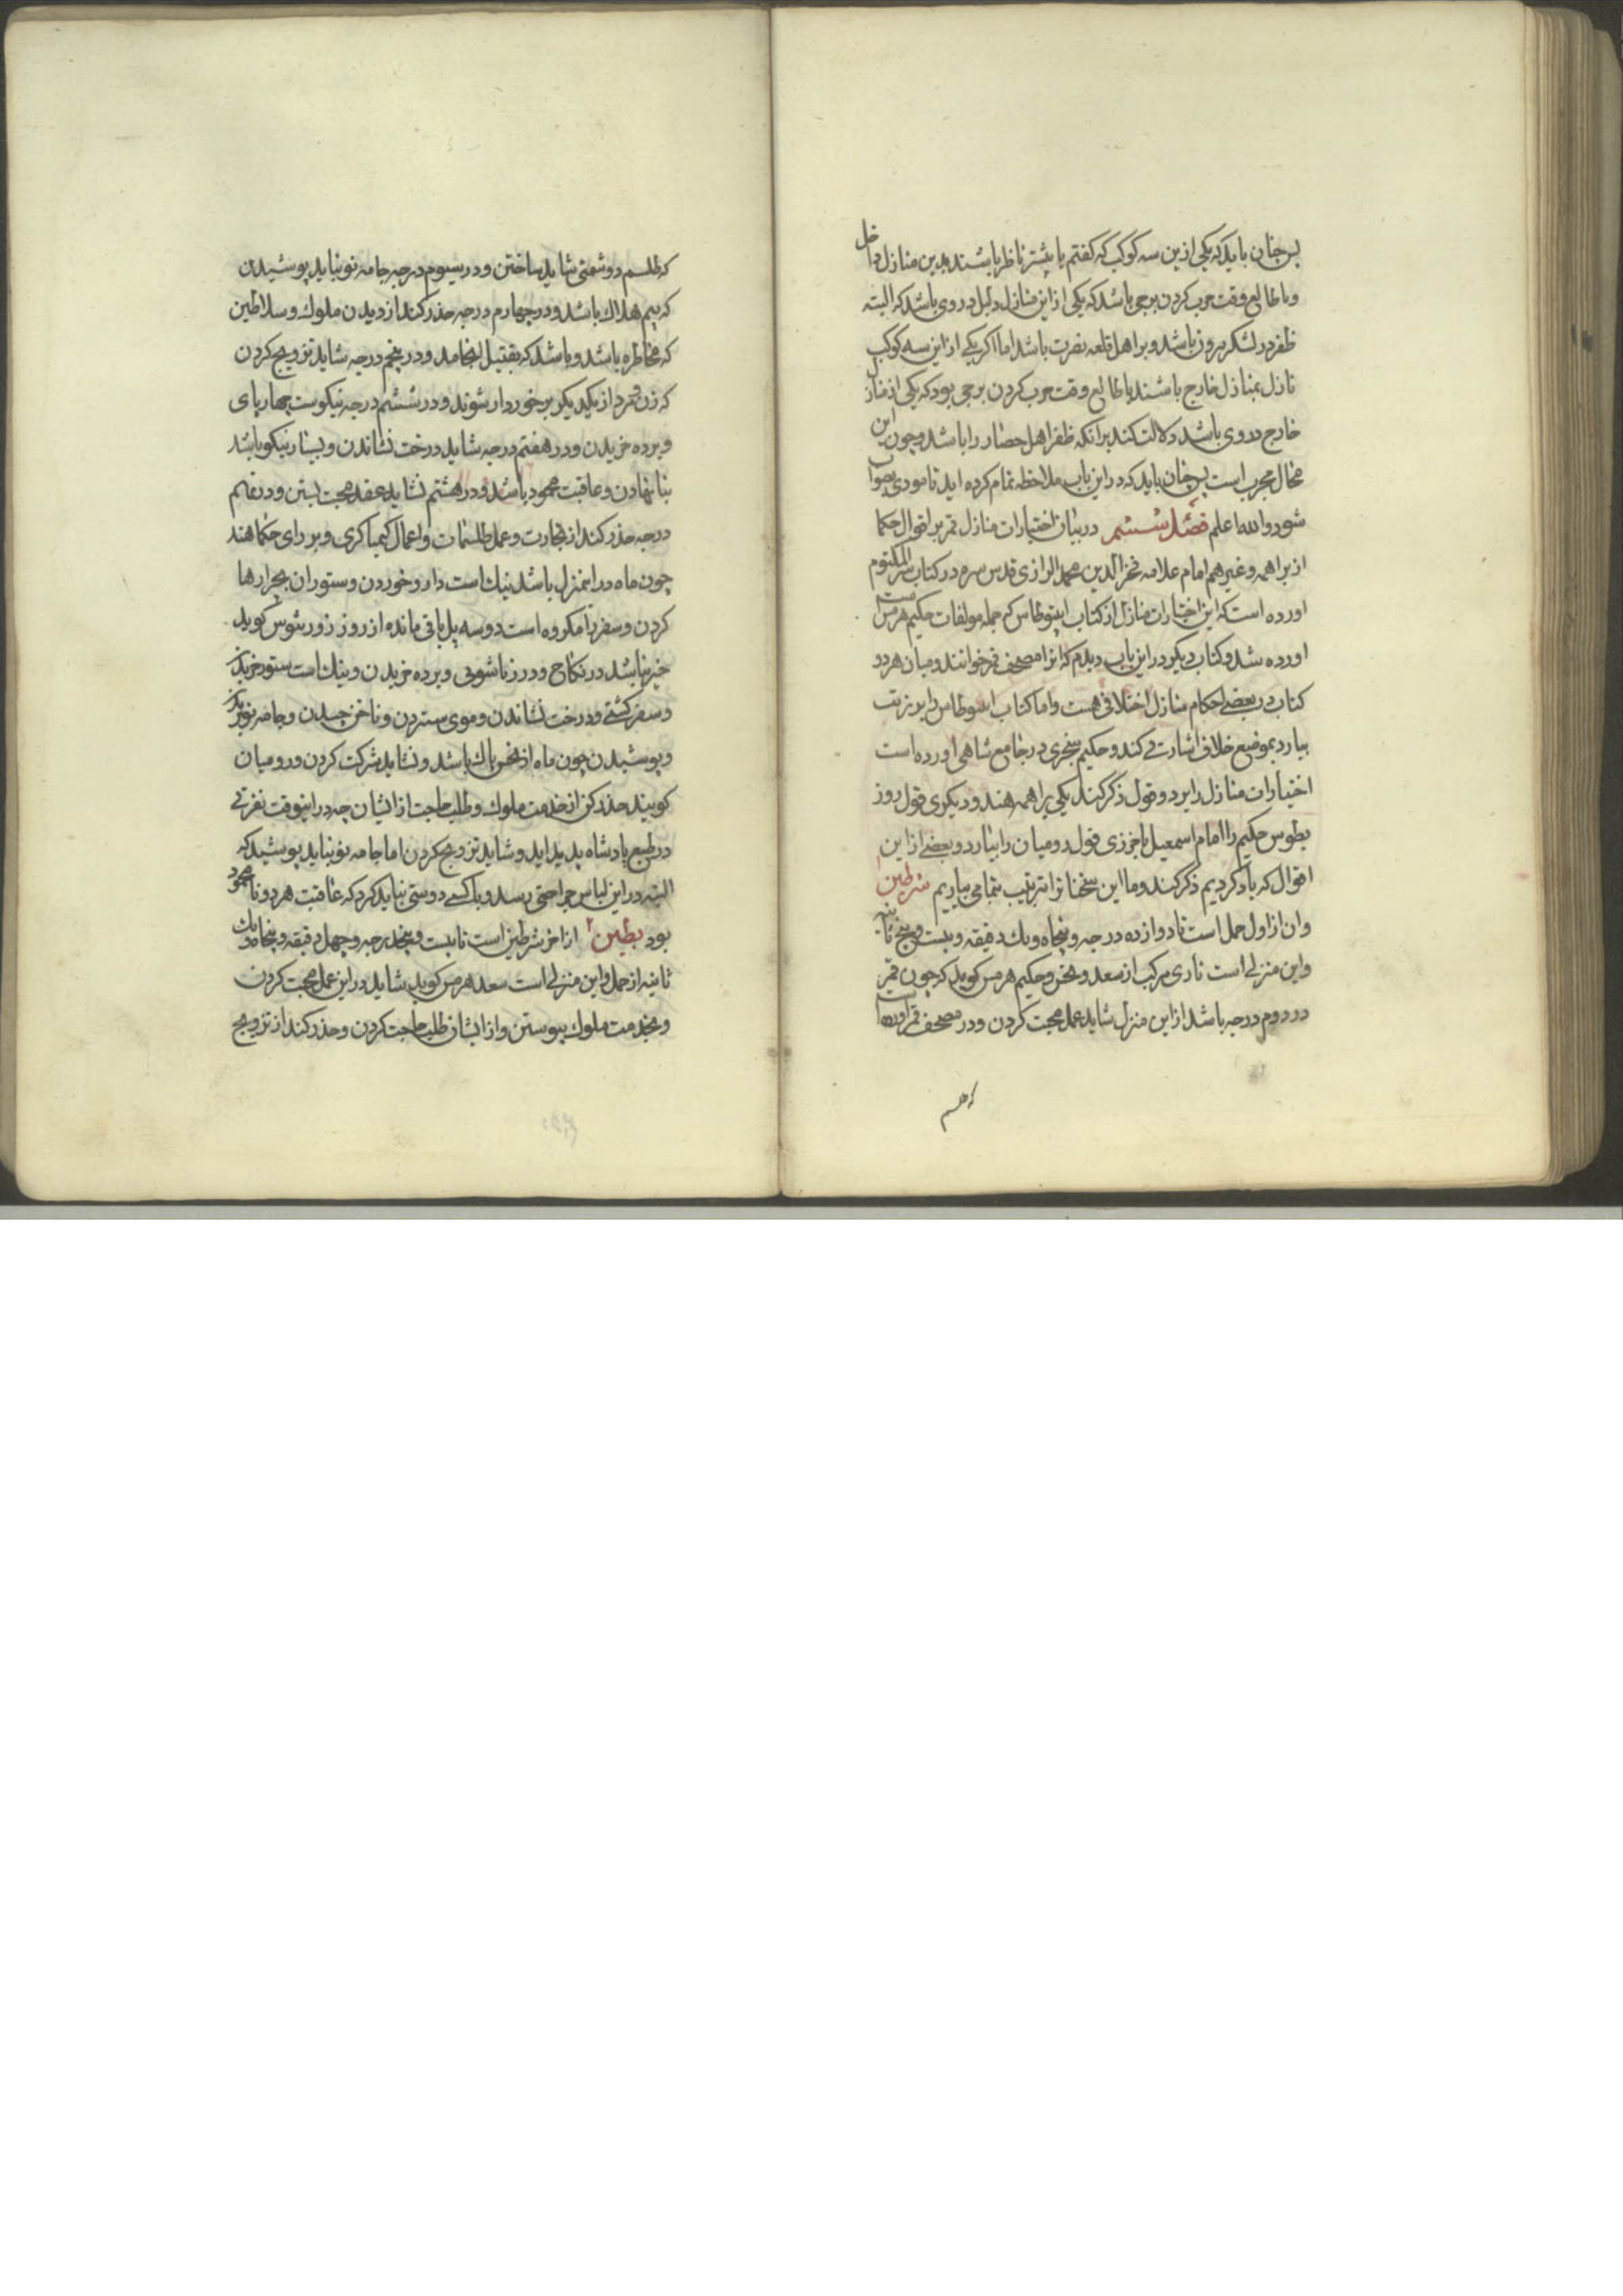 پس چنان باید که یکی ازین سه کوکب که کفتم یا پیشتر ناظر باشند بدین منازل داخل
و با طالع وقت حرب کردن برجی باشد که یکی از این منازل داخل در وی باشد که البته
ظفر در لشکر بیرون باشد و بر اهل قلعه نصرت باشد اما اکر یکی از این سه کوکب
نازل بمنازل خارج باشند یا طالع وقت حرب کردن برجی بود که یکی از منازل
خارج در وی باشد دلالت کند برانکه ظفر اهل حصار را باشد و چون این
محال مجرب است پس چنان باید که در این باب ملاحظه تمام کرده اید تا مودی بصواب
شود والله اعلم فصل ششم در بیان اختیارات منازل قمر بر اقوال حکما
از براهمه و غیرهم امام علامه فخر الدین محمد الرازی قدس سره در کتاب سر المکتوم
اورده است که این اختیارات منازل از کتاب که جمله مولفات حکیم هرمس است
اورده شد و کتاب دیکر در این باب دیدم که انرا مصحف قمر خوانند و میان هر دو
کتاب در بعضی احکام منازل اختلافی هست و اما کتاب را
بیارد بموضع خلاف اشارت کند و حکیم سجزی در جامع شاهی اورده است
اختیارات منازل را بر دو قول ذکر کند یکی براهمه هند و دیکری قول روز
بطوس حکیم را امام اسمعیل باخرزی قول رومیان را بیارد و بعضی از این
اقوال که یاد کردیم ذکر کند و ما این سخنانرا بترتیب بتمامی بیاریم شرطین ۱
وان از اول حمل است تا دوازده درجه و پنجاه و یک دقیقه و بیست و پنج ثانیه
و این منزلی است ناری مرکب از سعد و نحس و حکیم هرمس کوید که چون قمر
در دوم درجه باشد از این منزل شاید عمل محبت کردن و در مصحف قمر اورده است
که طلسم
که طلسم دوشمنی شاید ساختن و در سیوم درجه جامه نو نباید پوشیدن
که بیم هلاک باشد و در چهارم درجه حذر کند از دیدن ملوک و سلاطین
که مخاطره باشد و باشد که بقتیل انجامد و در پنجم درجه شاید تزویج کردن
که زن و مرد از یکدیکر برخوردار شوند و در ششم درجه نیکوست چهارپای
و برده خریدن و در هفتم درجه شاید درخت نشاندن و بسیار نیکو باشد
بنا نهادن و عاقبت محمود باشد و در هشتم نشاید عقد محبت بستن و در نهم
درجه حذر کند از تجارت و عمل طلسمات و اعمال کیمیاکری و بر رای حکما هند
چون ماه در اینمنزل باشد نیک است دارو خوردن و ستوران بچرارها
کردن و سفر را مکروه است دو سه باقی مانده از روز زورثوس کوید
خیر نباشد در نکاح و در زناشوئی و برده خریدن و نیک است ستور خریدن
و سفر کشتی و درخت نشاندن و موی ستردن و ناخن چیدن و جامه نو بریدن
و پوشیدن چون ماه از نحس پاک باشد و نشاید شرکت کردن و رومیان
کویند حذر کن از خدمت ملوک و طلب حاجت از ایشان چه در اینوقت نفرتی
در طبع پادشاه پدید اید و شاید تزویج کردن اما جامه نو نباید پوشید که
البته در این لباس جراحتی رسد و با کسی دوستی نباید کرد که عاقبت هر دو نامحمود
بود بطین ۲ از اخر شرطین است تا بیست و پنجدرجه و چهل دقیقه و پنجاه و یک
ثانیه از حمل و این منزلی است سعد هرمس کوید شاید در این عمل محبت کردن
و بخدمت ملوک پیوستن و از ایشان طلب حاجت کردن و حذر کند از تزویج